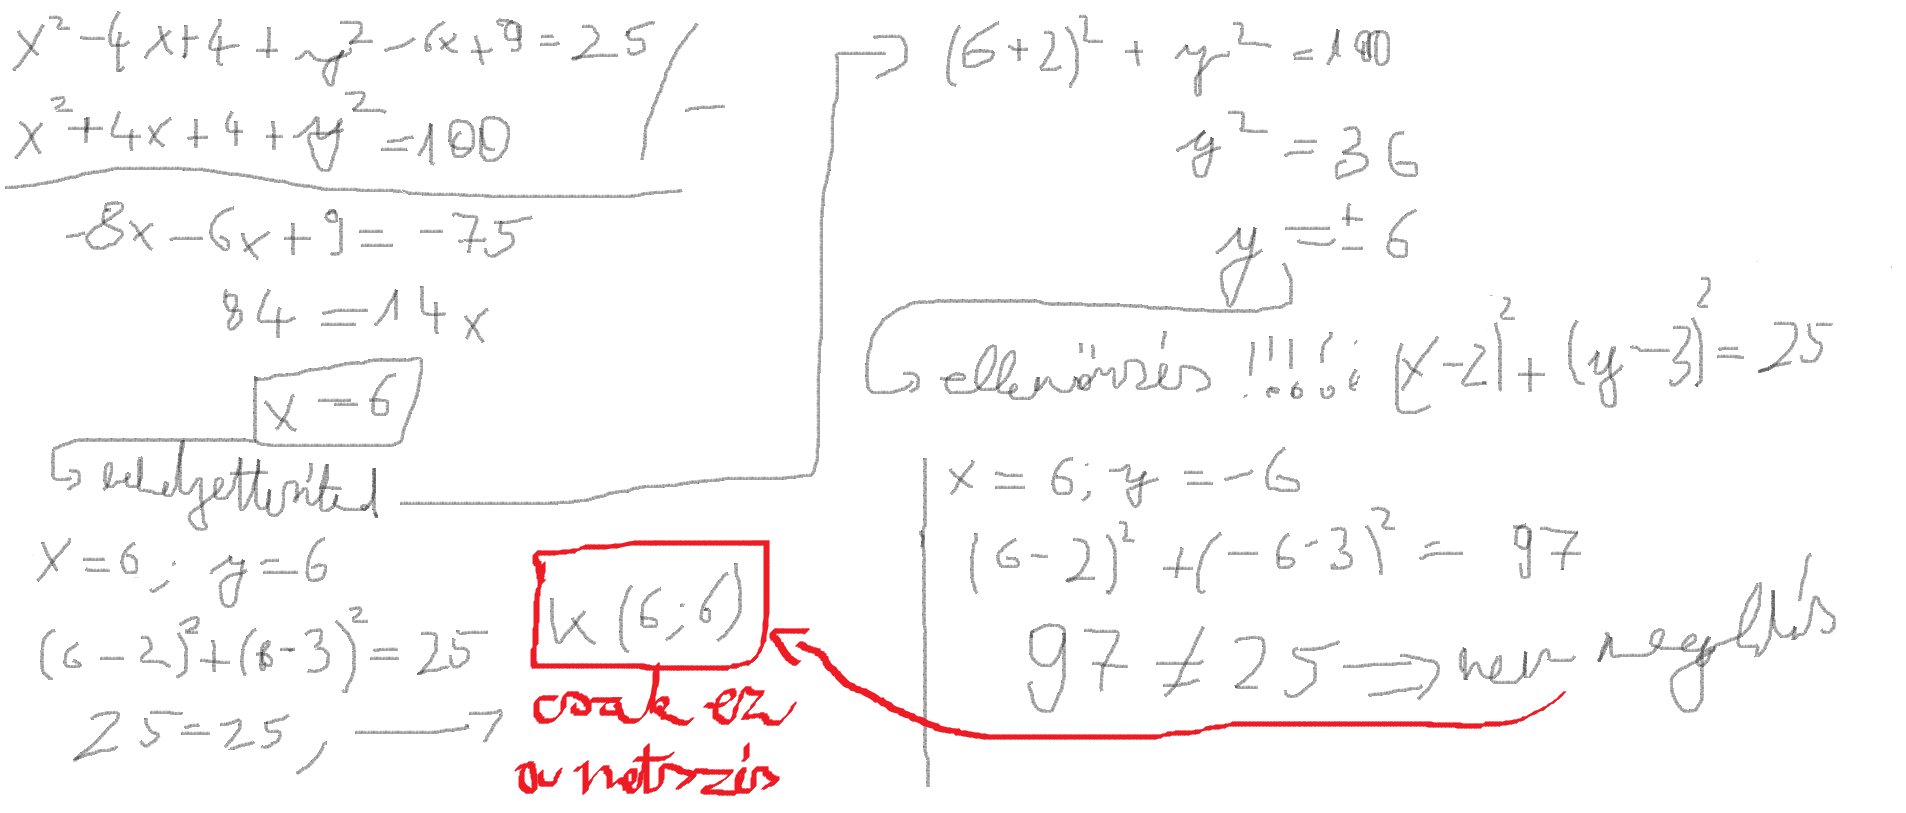 x² - 4x + 4 + y² - 6x + 9 = 25 / -
x² + 4x + 4 + y² = 100
-8x - 6x + 9 = -75
84 = 14x
x = 6
behelyettesíted
(6+2)² + y² = 100
y² = 36
y = ± 6
ellenőrzés !!!!! : (x-2)² + (y-3)² = 25
x = 6; y = 6
(6-2)² + (6-3)² = 25
25 = 25,
K (6;6)
csak ez
a metszés
x = 6; y = -6
(6-2)² + (-6-3)² = 97
97 ≠ 25 → nem megoldás